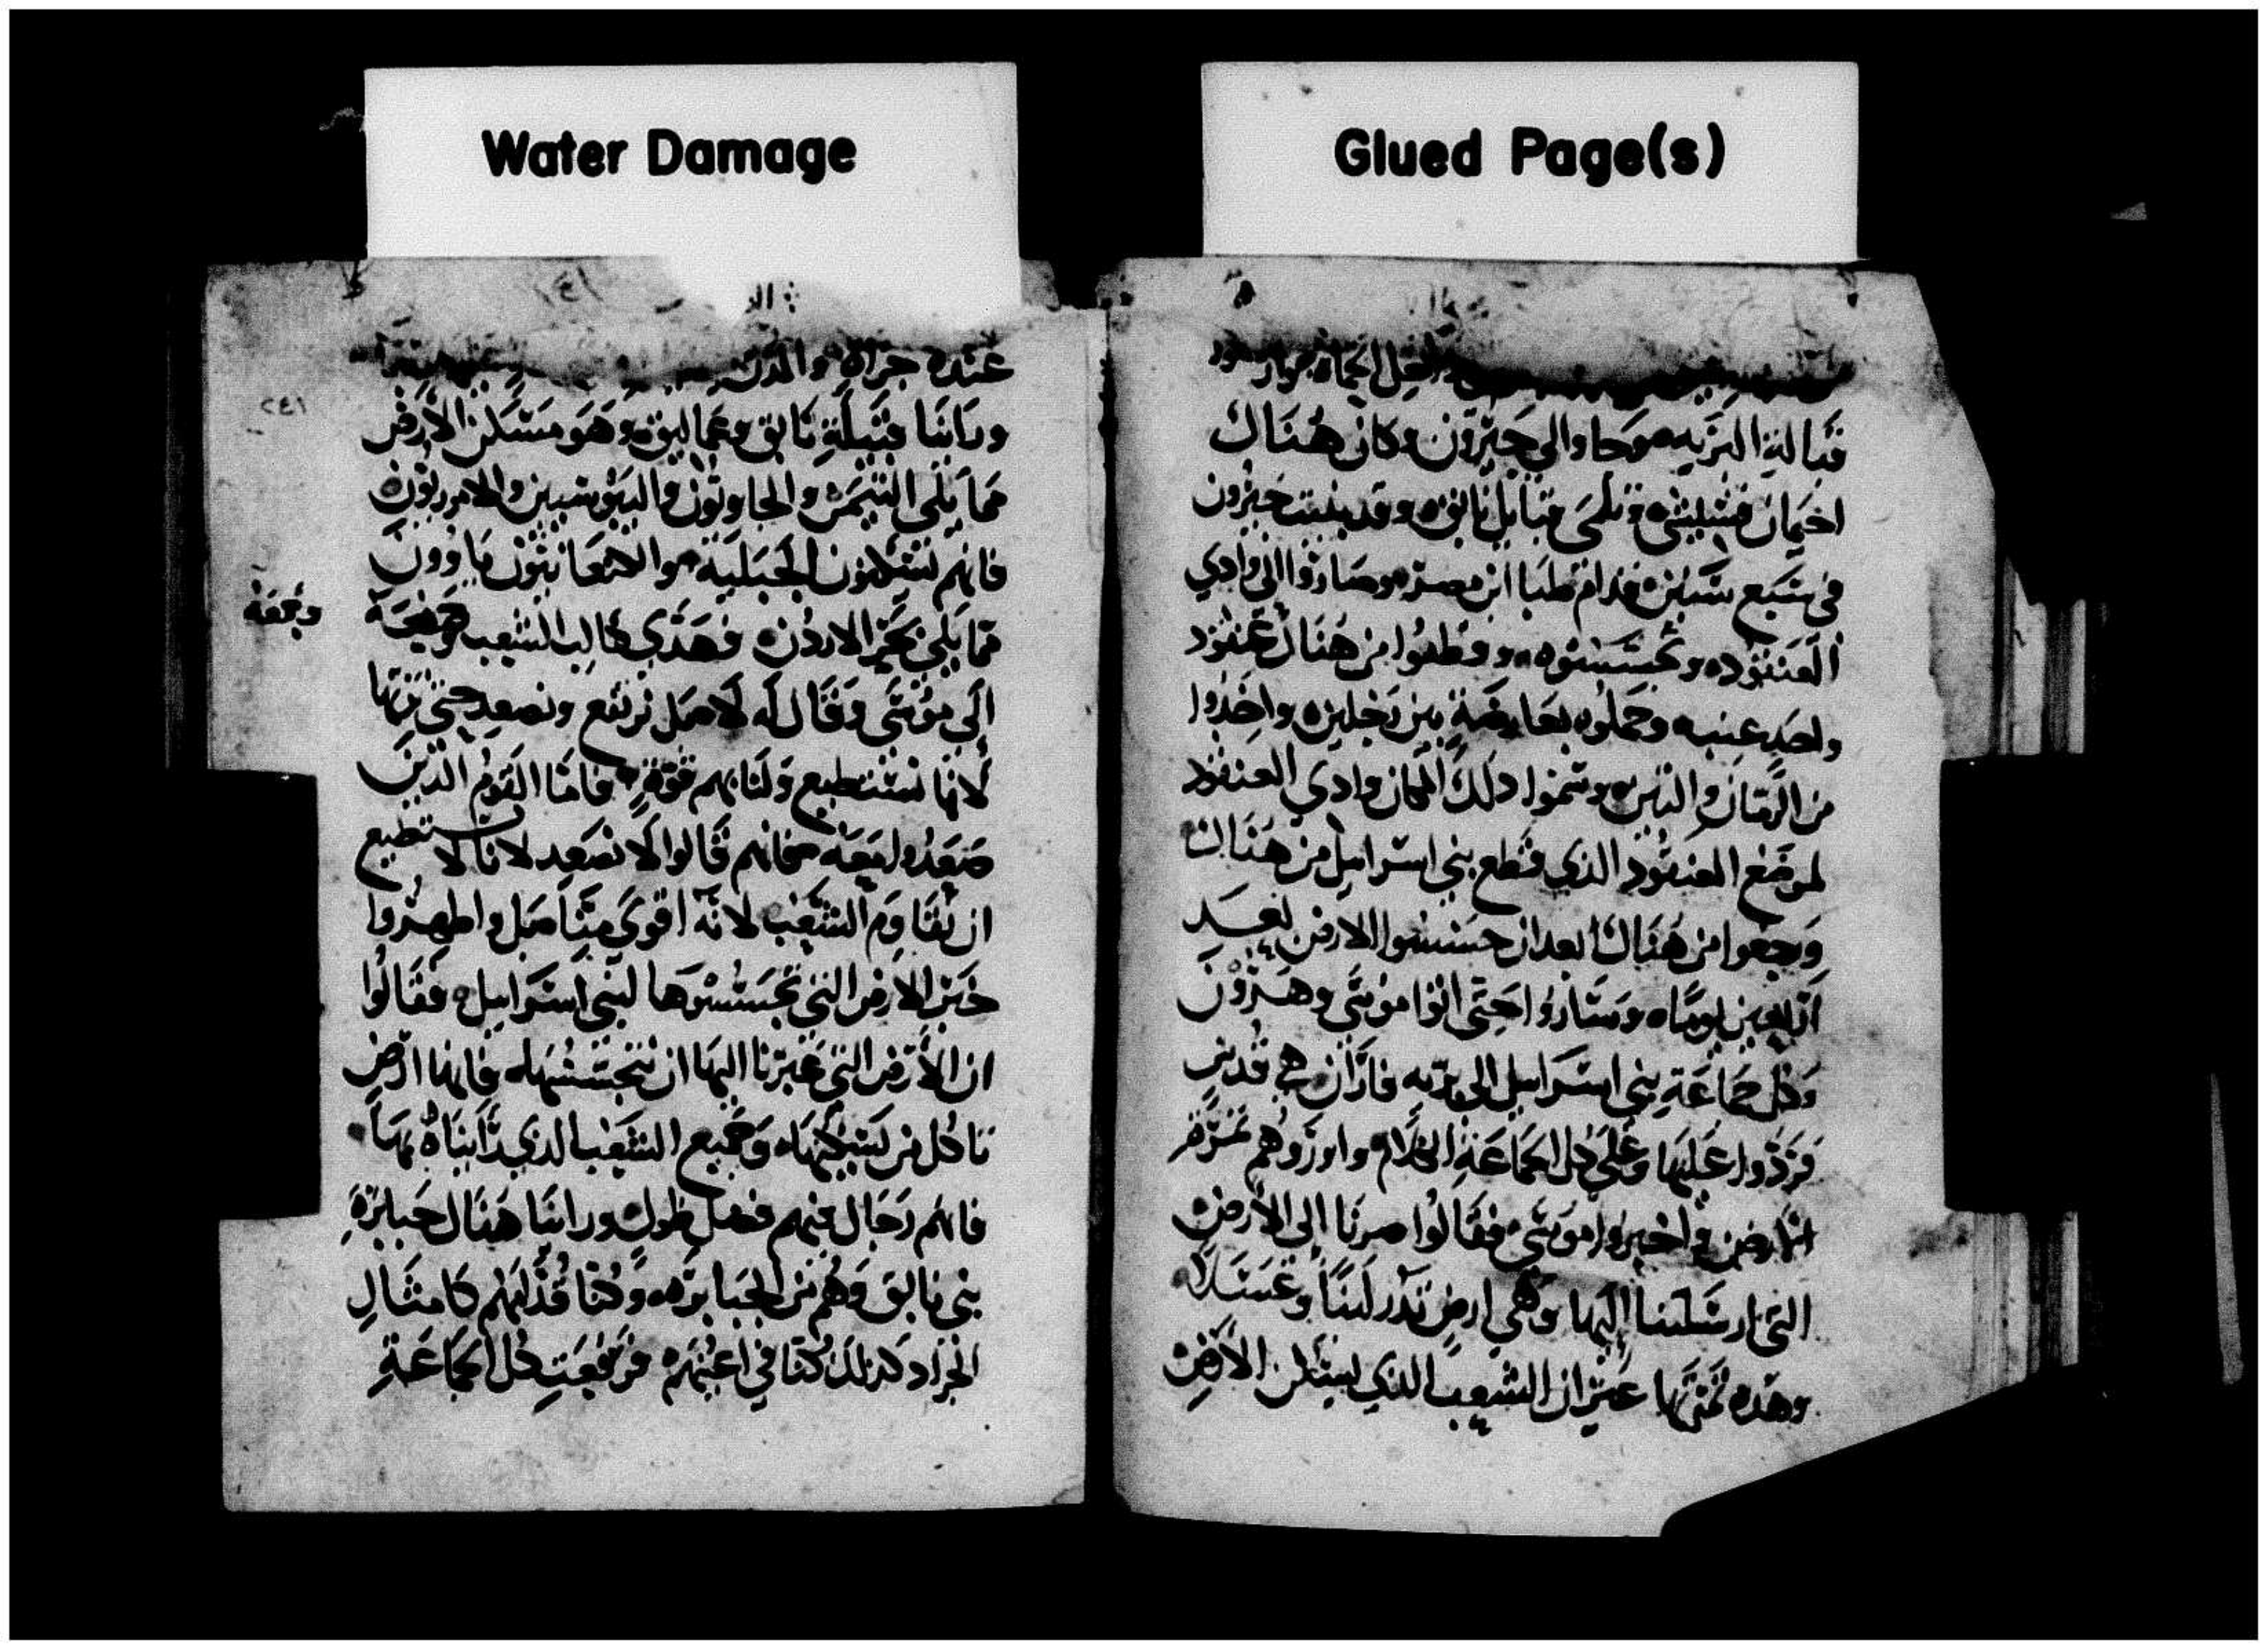 Water Damage
Glued Page(s)
الجماعة
قبالة البريه صوحا والي حبرون وكان هناك
اخيمان وتلمي قبايل نابق وقد بنيت حبرون
في سبع سنين قدام طبا ابن مصر وصاروا الى وادي
العنقوده وتجسسوه وقطعوا من هناك عنقود
واحد عنبه وحملوه بعارضة بين رجلين واخذوا
من الرمان والتين وسموا دلك المكان وادي العنقود
لموضع العنقود الذي قطع بني اسراييل من هناك
ورجعوا من هناك بعد ان حسسوا الارض بعد
اربعين يوما وساروا حتى اتوا موسى وهرون
وكل جماعة بني اسراييل الى بريه فاران في قدس
فردوا عليها وعلى كل الجماعة الكلام واوروهم تمرة
الارض واخبروا موسى فقالوا صرنا الى الارض
التي ارسلتنا اليها وهي ارض تدر لبنا وعسلا
وهده تمرتها غير ان الشعب الذي يسكن الارض
٢٤١
عنده جراه والمدن
وراينا قبيلة نابق وعماليق وهو مسكن الارض
مما يلي التيمن والحاويون واليبوسيين والاموريون
فانهم يسكنون الجبلية والكنعانيون ياوون
مما يلي بحر الاردن فهدى كالب الشعب
وبجمعه
الى موسى وقال له لا بل نرتفع ونصعد حتى نرتها
لانا نستطيع ولنا بهم قوة فاما القوم الذين
صعدوا معه فانهم قالوا لا نصعد لانا لا نستطيع
ان نقاوم الشعب لانه اقوى منا بل واظهروا
خبر الارض التي تجسسوها لبني اسراييل فقالوا
ان الارض التي عبرنا اليها ان نتجسسها فانها ارض
تاكل من يسكنها وجميع الشعب الذي رايناه بها
فانهم رجال فيهم فضل طول وراينا هناك جبابرة
بني نابق وهم من الجبابرة وكنا قدامهم كامثال
الجراد كذلك كنا في اعينهم فرفعت كل الجماعة